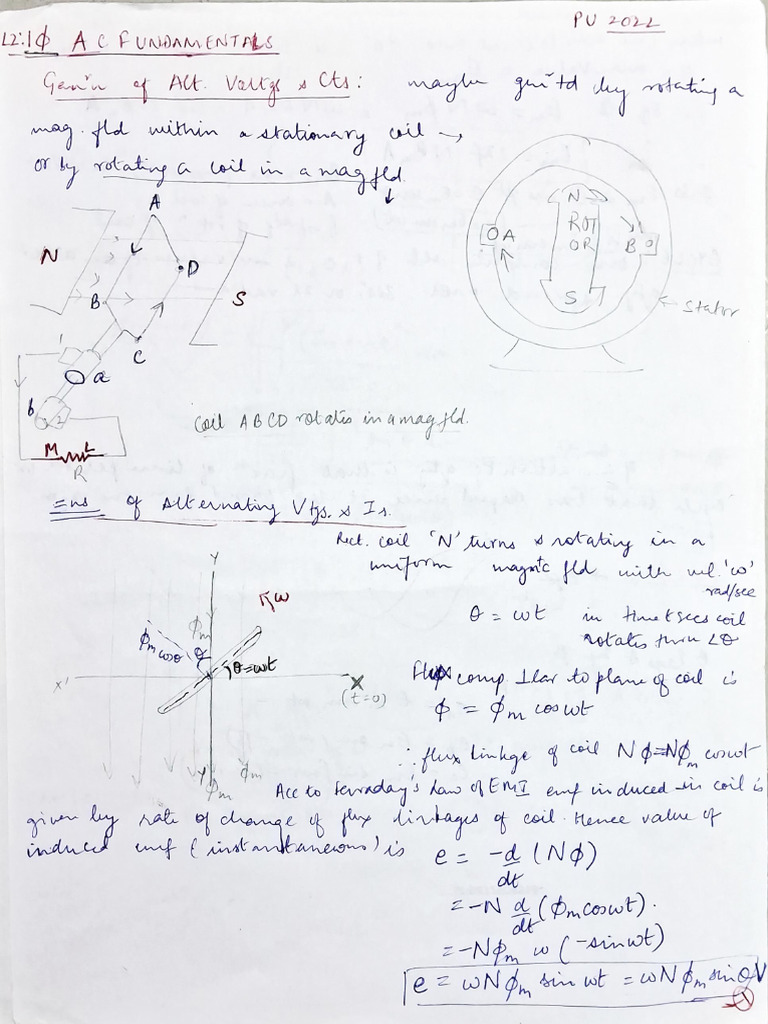 PU 2022
L2:1Φ AC FUNDAMENTALS
Gen'n of Alt. Voltgs & Cts: maybe gen'td by rotating a
mag. fld within a stationary coil →
or by rotating a coil in a mag fld.
A
N
D
B
S
C
1
a
b
2
M L
R
N
ROT
OR
S
A
B
← Stator
coil ABCD rotates in a mag fld.
=ns of Alternating Vtgs. & Is.
Rect. coil 'N' turns & rotating in a
uniform magntc fld with vel. 'ω'
rad/sec
θ = ωt in time t secs coil
rotates thru ∠θ
Y
ω
ϕm
ϕm cosθ
θ
θ=ωt
X'
X
(t=0)
Y
ϕm
ϕm
Flux comp ⊥lar to plane of coil is
ϕ = ϕm cosωt
∴ flux linkge of coil Nϕ=Nϕm cosωt
Acc to Farraday's Law of EMI emf induced in coil is
given by rate of change of flux linkages of coil. Hence value of
induced emf (instantaneous) is
e = -d/dt (Nϕ)
= -N d/dt (ϕm cosωt).
= -Nϕm ω (-sinωt)
e = ωNϕm sin ωt = ωNϕm sinθ V
1